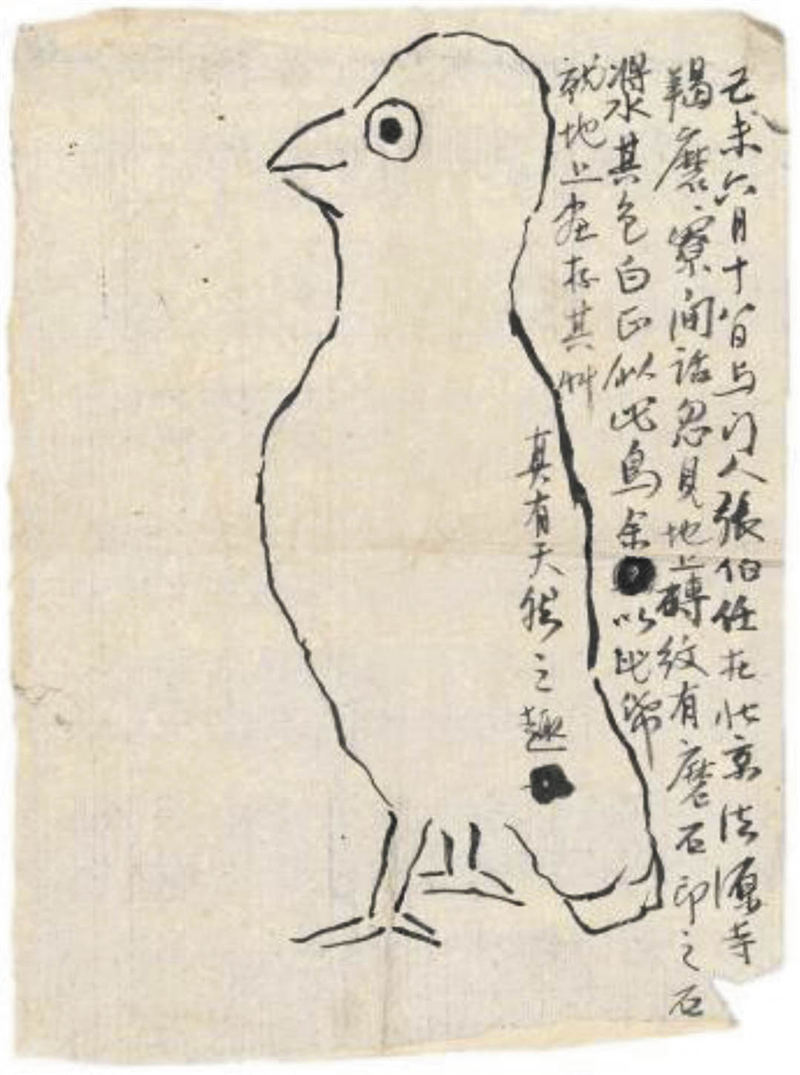 己未六月十八日与门人張伯任在北京法源寺
羯磨寮间话忽見地上磚纹有磨石印之石
浆水其色白正似此鳥余以此纸
就地上画存其草
真有天然之趣